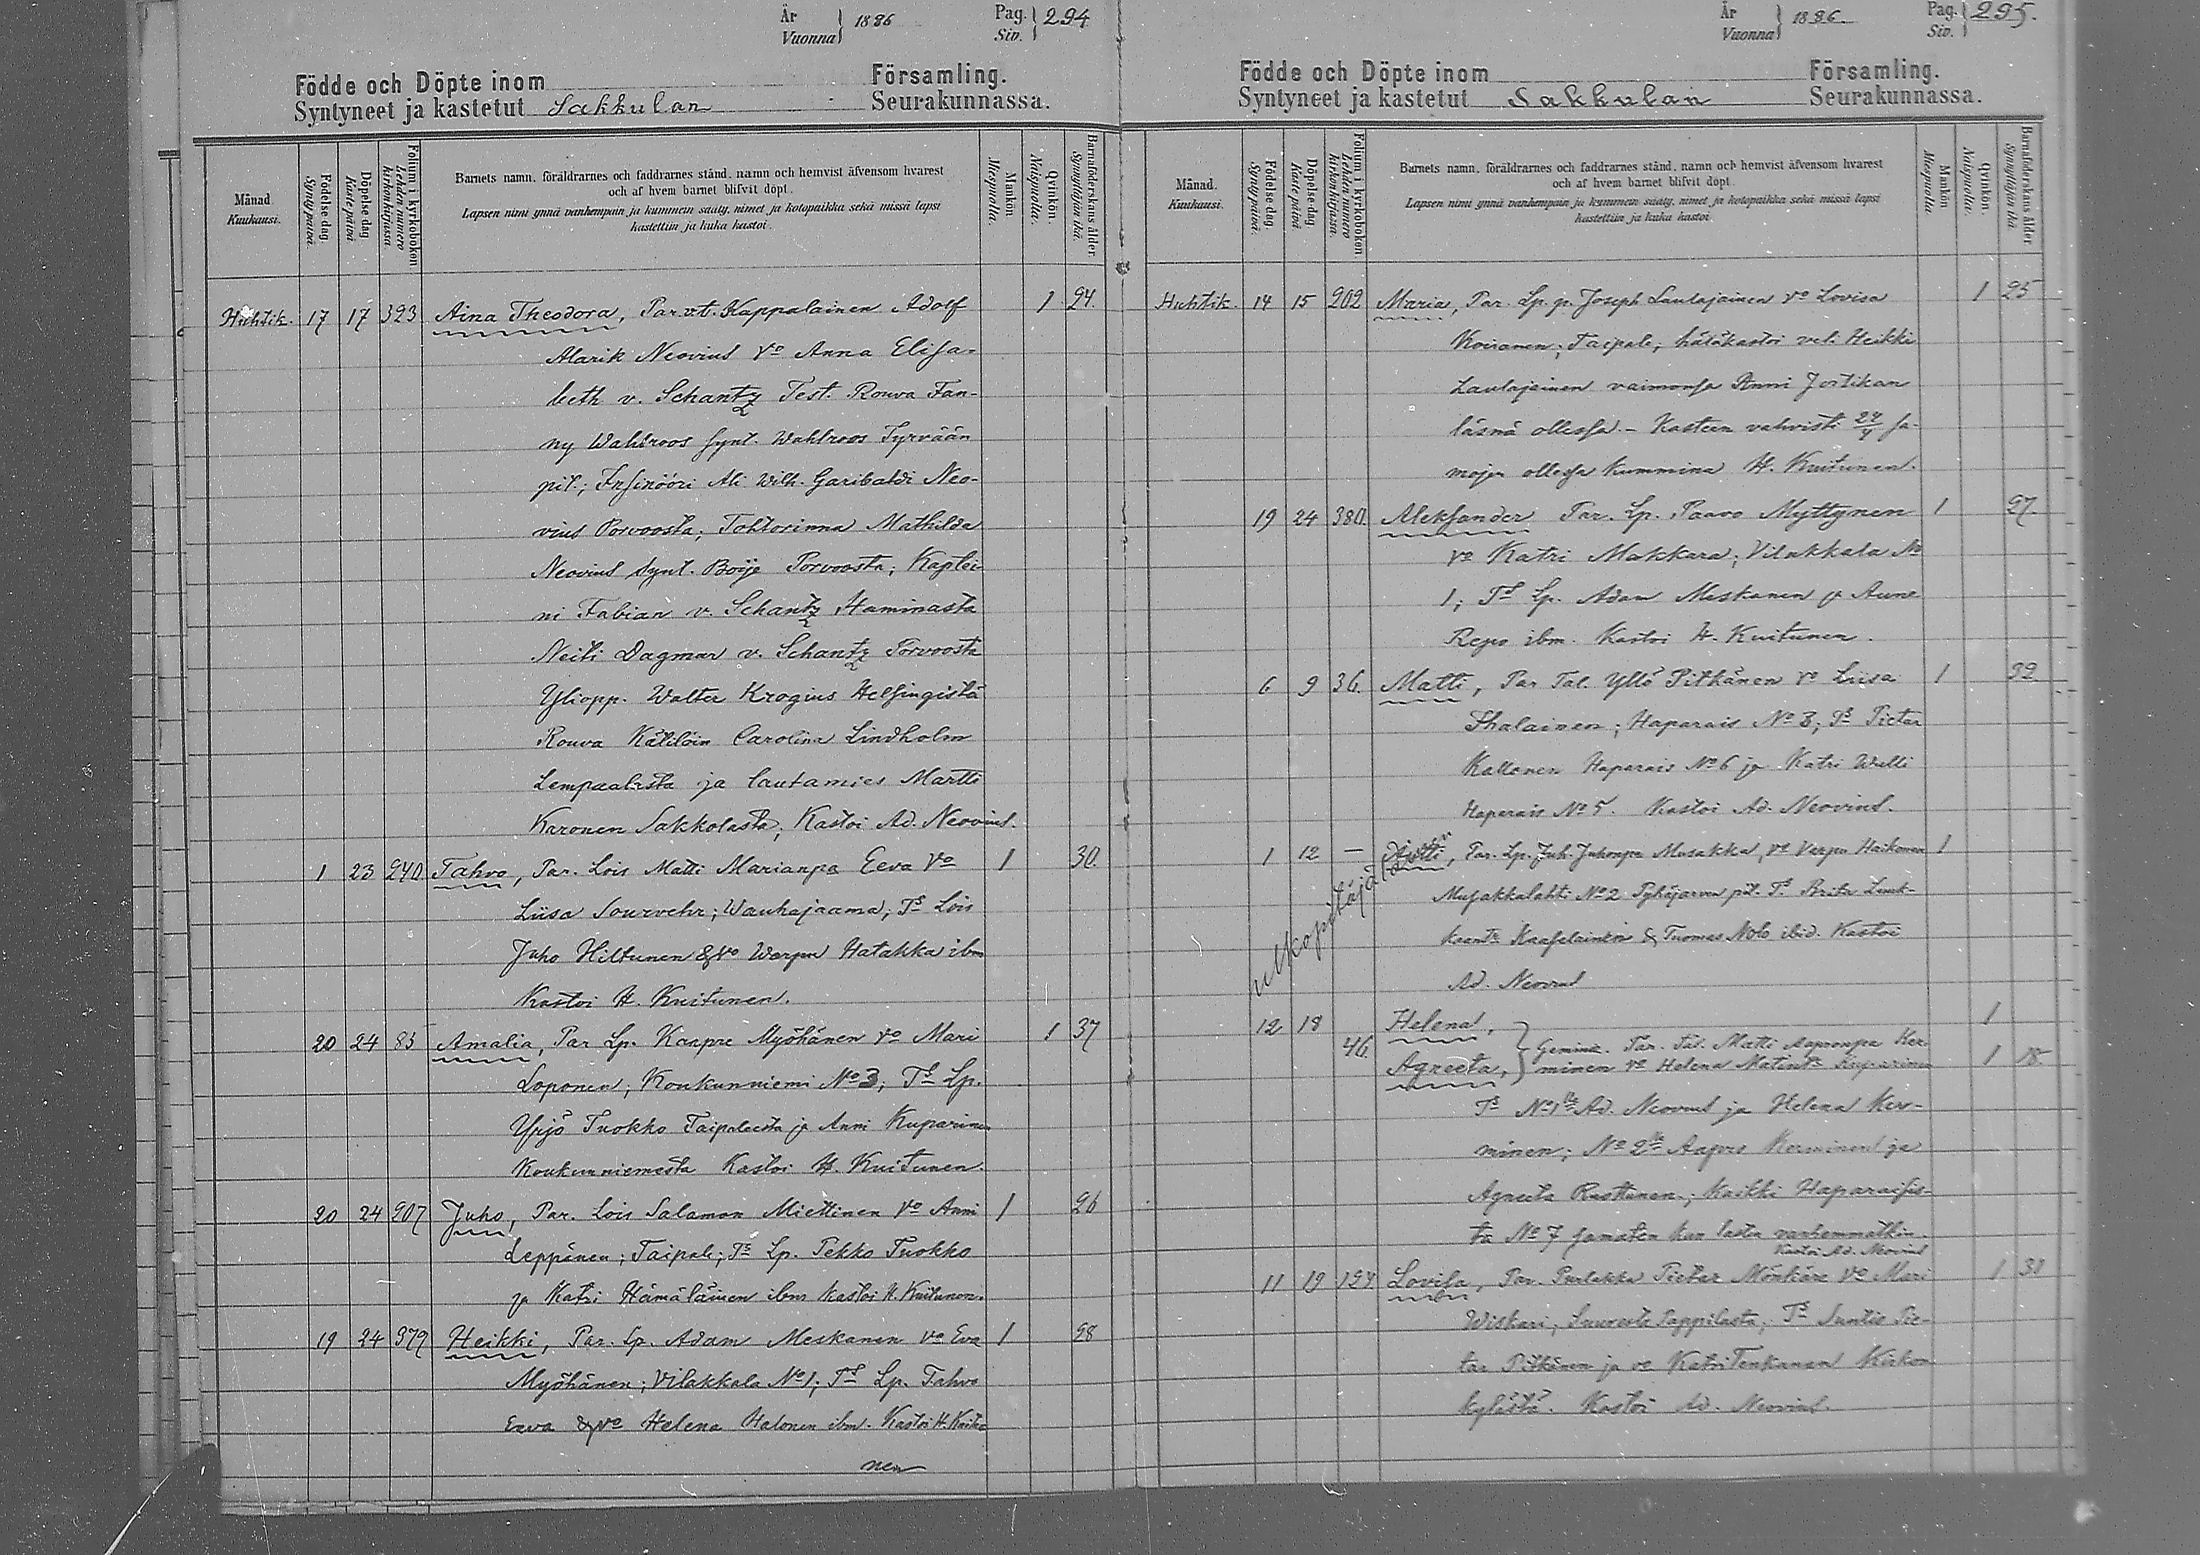 År
Vuonna } 1886
Pag.
Siv. } 294
Födde och Döpte inom Församling.
Syntyneet ja kastetut Sakkulan Seurakunnassa.
Månad.
Kuukausi.
Födelsedag
Syntypäivä.
Döpelsedag
Kastepäivä
Folium i kyrkoboken
Lehden numero kirkonkirjassa
Barnets namn, föräldrarnes och faddrarnes stånd, namn och hemvist äfvensom hvarest
och af hvem barnet blifvit döpt.
Lapsen nimi ynnä vanhempain ja kummein sääty, nimet ja kotopaikka sekä missä lapsi
kastettiin ja kuka kastoi.
Mankön.
Miespuolia.
Qvinkön.
Naispuolia.
Barnaföderskans ålder
Synnyttäjän ikä.
Huhtik. 17 17 393 Aina Theodora, Par. vt. Kappalainen Adolf 1 24.
Alarik Neovius Vo Anna Elisa-
beth v. Schantz Test. Rouva Fan-
ny Wahlroos synt. Wahlroos Tyrvään
pit.; Insinööri Ali Wilh. Garibaldi Neo-
vius Porvoosta; Tohtorinna Mathilda
Neovius synt. Boije Porvoosta; Kaptei-
ni Fabian v. Schantz Haminasta
Neiti Dagmar v. Schantz Porvoosta
Yliopp. Walter Krogius Helsingistä
Rouva Kätilöin Carolina Lindholm
Lempaalasta ja lautamies Martti
Karonen Sakkolasta; Kastoi Ad. Neovius.
1 23 240 Tahvo, Par. Lois Matti Marianpa Eeva Vo 1 30.
Liisa Sourvehr; Wauhajaama; Ts Lois
Juho Hiltunen & Vo Warpu Hatakka ibm
Kastoi H. Kuitunen.
20 24 85 Amalia, Par Lp. Kaapre Myöhänen Vo Mari 1 37
Loponen; Koukunniemi No 3; Ts Lp.
Yrjö Tuokko Taipaleesta ja Anni Kuparinen
Koukunniemestä Kastoi H. Kuitunen.
20 24 207 Juho, Par. Lois Salamon Miettinen Vo Anni 1 26
Leppänen; Taipale; Ts Lp. Pekko Tuokko
ja Katri Hämäläinen ibm kastoi H. Kuitunen.
19 24 379 Heikki, Par. Lp. Adam Meskanen Vo Eva 1 28
Myöhänen; Vilakkala No 1; Ts Lp. Tahvo
Eeva & Vo Helena Halonen ibm. Kastoi H. Kuitu-
nen
År
Vuonna } 1886.
Pag.
Siv. } 295.
Födde och Döpte inom Församling.
Syntyneet ja kastetut Sakkulan Seurakunnassa.
Månad.
Kuukausi.
Födelsedag
Syntypäivä.
Döpelsedag
Kastepäivä
Folium i kyrkoboken
Lehden numero kirkonkirjassa.
Barnets namn, föräldrarnes och faddrarnes stånd, namn och hemvist äfvensom hvarest
och af hvem barnet blifvit döpt.
Lapsen nimi ynnä vanhempain ja kummein sääty, nimet ja kotopaikka sekä missä lapsi
kastettiin ja kuka kastoi.
Mankön
Miespuolia
Qvinkön.
Naispuolia.
Barnaföderskans ålder
Synnyttäjän ikä.
Huhtik. 14 15 202 Maria, Par. Lp. p. Joseph Laulajainen Vo Lovisa 1 25
Koiranen; Taipale; hätäkastoi vel. Heikki
Laulajainen vaimonsa Anni Jortikan
läsnä ollessa. - Kasteen vahvisti 24/4 sa-
mojen ollessa kummina H. Kuitunen.
19 24 380. Aleksander Par. Lp. Paavo Myttynen 1 27.
Vo Katri Makkara; Vilakkala No
1; Ts Lp. Adam Meskanen ja Aune
Repo ibm. Kastoi H. Kuitunen.
6 9 36. Matti, Par Tal. Yllö Pitkänen Vo Liisa 1 32
Ihalainen; Haparais No 3; Ts Pietar
Kallonen Haparais No 6 ja Katri Walli
Haparais No 5. Kastoi Ad. Neovius.
ulkopitäjältä
1 12 - Antti, Par. Lp. Juh. Juhonpa Musakka, Vo Varpu Haikonen 1
Musakkalahti No 2 Pyhäjärven pit. Ts Brita Luuk-
keantr. Kaasalainen & Tuomas Nolo ibid. Kastoi
Ad. Neovius
12 18 46. Helena, 1
Agneeta, } Gemina. Par. Tal. Matti Aapronpa Ker-
minen Vo Helena Matintr Kuparinen 1 18.
Ts No 1lle Ad. Neovius ja Helena Ker-
minen; No 2lle Aapro Kerminen ja
Agneeta Rusttunen; kaikki Haparaisis-
ta No 7 samaten kun lasten vanhemmatkin.
Kastoi Ad. Neovius
11 19 Lovisa, Par. Purlakka Pietar Mönkäre Vo Mari 1 31
Wiskari; Suuresta Pappilasta; Ts Suntio Pie-
tar Pitkänen ja vo Katri Tenkanen Kirkon
kylästä. Kastoi Ad. Neovius.